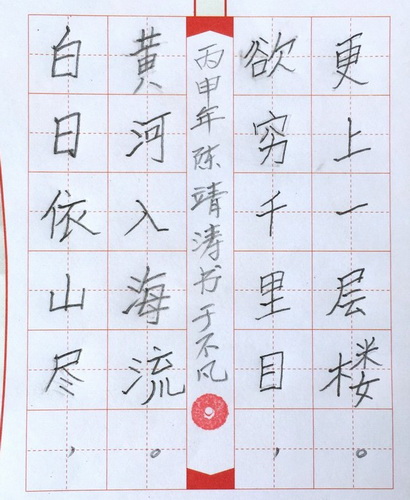 白日依山尽，
黄河入海流。
丙申年陈靖涛书于不凡
欲穷千里目，
更上一层楼。